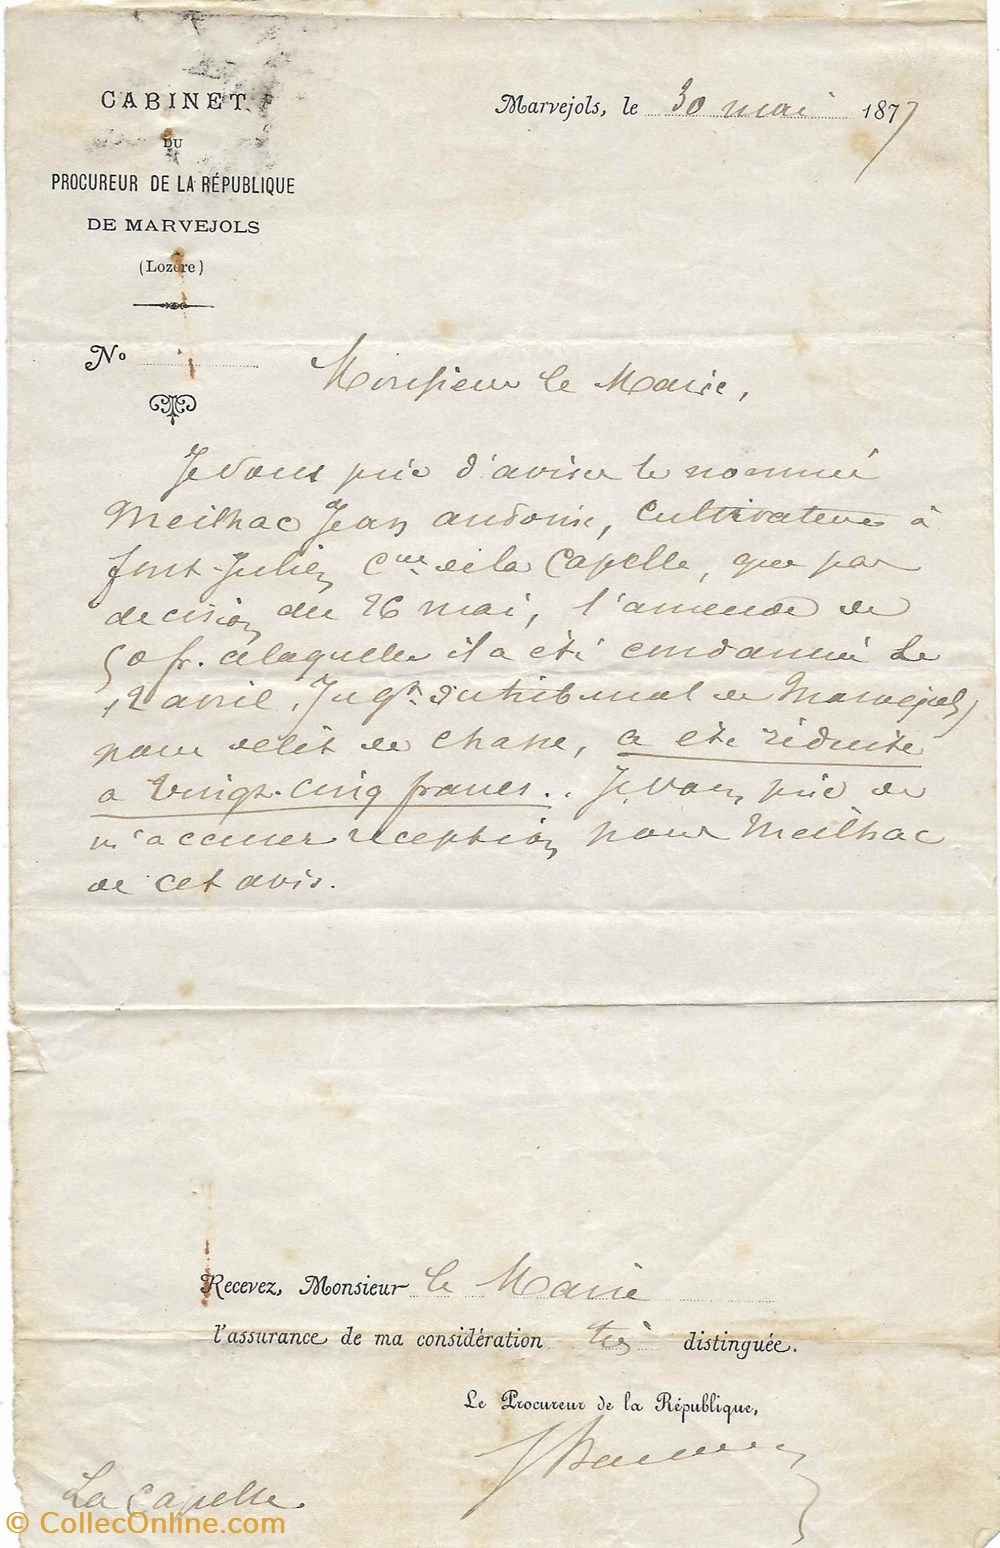 CABINET
DU
PROCUREUR DE LA RÉPUBLIQUE
DE MARVEJOLS
(Lozère)
Marvejols, le 30 mai 1877
No
Monsieur le Maire,
Je vous prie d'aviser le nommé
Meilhac Jean Antoine, Cultivateur à
font-Julien Cne de la Capelle, que par
decision du 26 mai, l'amende de
50 fr. à laquelle il a été condamné le
12 avril, Jugt du tribunal de Marvejols
pour delit de chasse, a été réduite
a vingt-cinq francs. Je vous prie de
m'accuser reception pour Meilhac
de cet avis.
Recevez, Monsieur le Maire
l'assurance de ma considération très distinguée.
Le Procureur de la République,
La Capelle
© CollecOnline.com